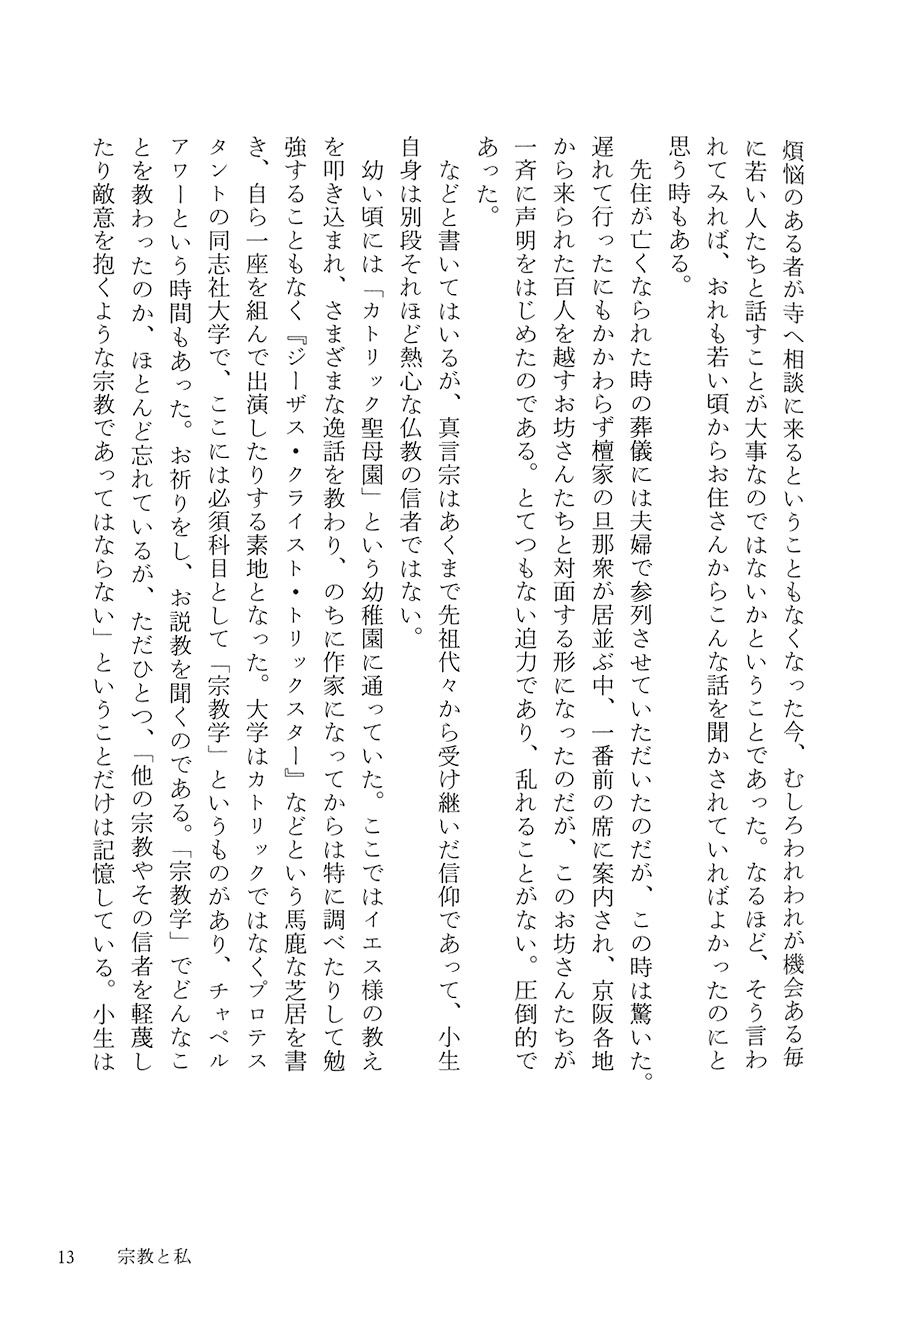 煩悩のある者が寺へ相談に来るということもなくなった今、むしろわれわれが機会ある毎
に若い人たちと話すことが大事なのではないかということであった。なるほど、そう言わ
れてみれば、おれも若い頃からお住さんからこんな話を聞かされていればよかったのにと
思う時もある。
　先住が亡くなられた時の葬儀には夫婦で参列させていただいたのだが、この時は驚いた。
遅れて行ったにもかかわらず檀家の旦那衆が居並ぶ中、一番前の席に案内され、京阪各地
から来られた百人を越すお坊さんたちと対面する形になったのだが、このお坊さんたちが
一斉に声明をはじめたのである。とてつもない迫力であり、乱れることがない。圧倒的で
あった。
　などと書いてはいるが、真言宗はあくまで先祖代々から受け継いだ信仰であって、小生
自身は別段それほど熱心な仏教の信者ではない。
　幼い頃には「カトリック聖母園」という幼稚園に通っていた。ここではイエス様の教え
を叩き込まれ、さまざまな逸話を教わり、のちに作家になってからは特に調べたりして勉
強することもなく『ジーザス・クライスト・トリックスター』などという馬鹿な芝居を書
き、自ら一座を組んで出演したりする素地となった。大学はカトリックではなくプロテス
タントの同志社大学で、ここには必須科目として「宗教学」というものがあり、チャペル
アワーという時間もあった。お祈りをし、お説教を聞くのである。「宗教学」でどんなこ
とを教わったのか、ほとんど忘れているが、ただひとつ、「他の宗教やその信者を軽蔑し
たり敵意を抱くような宗教であってはならない」ということだけは記憶している。小生は
13　宗教と私